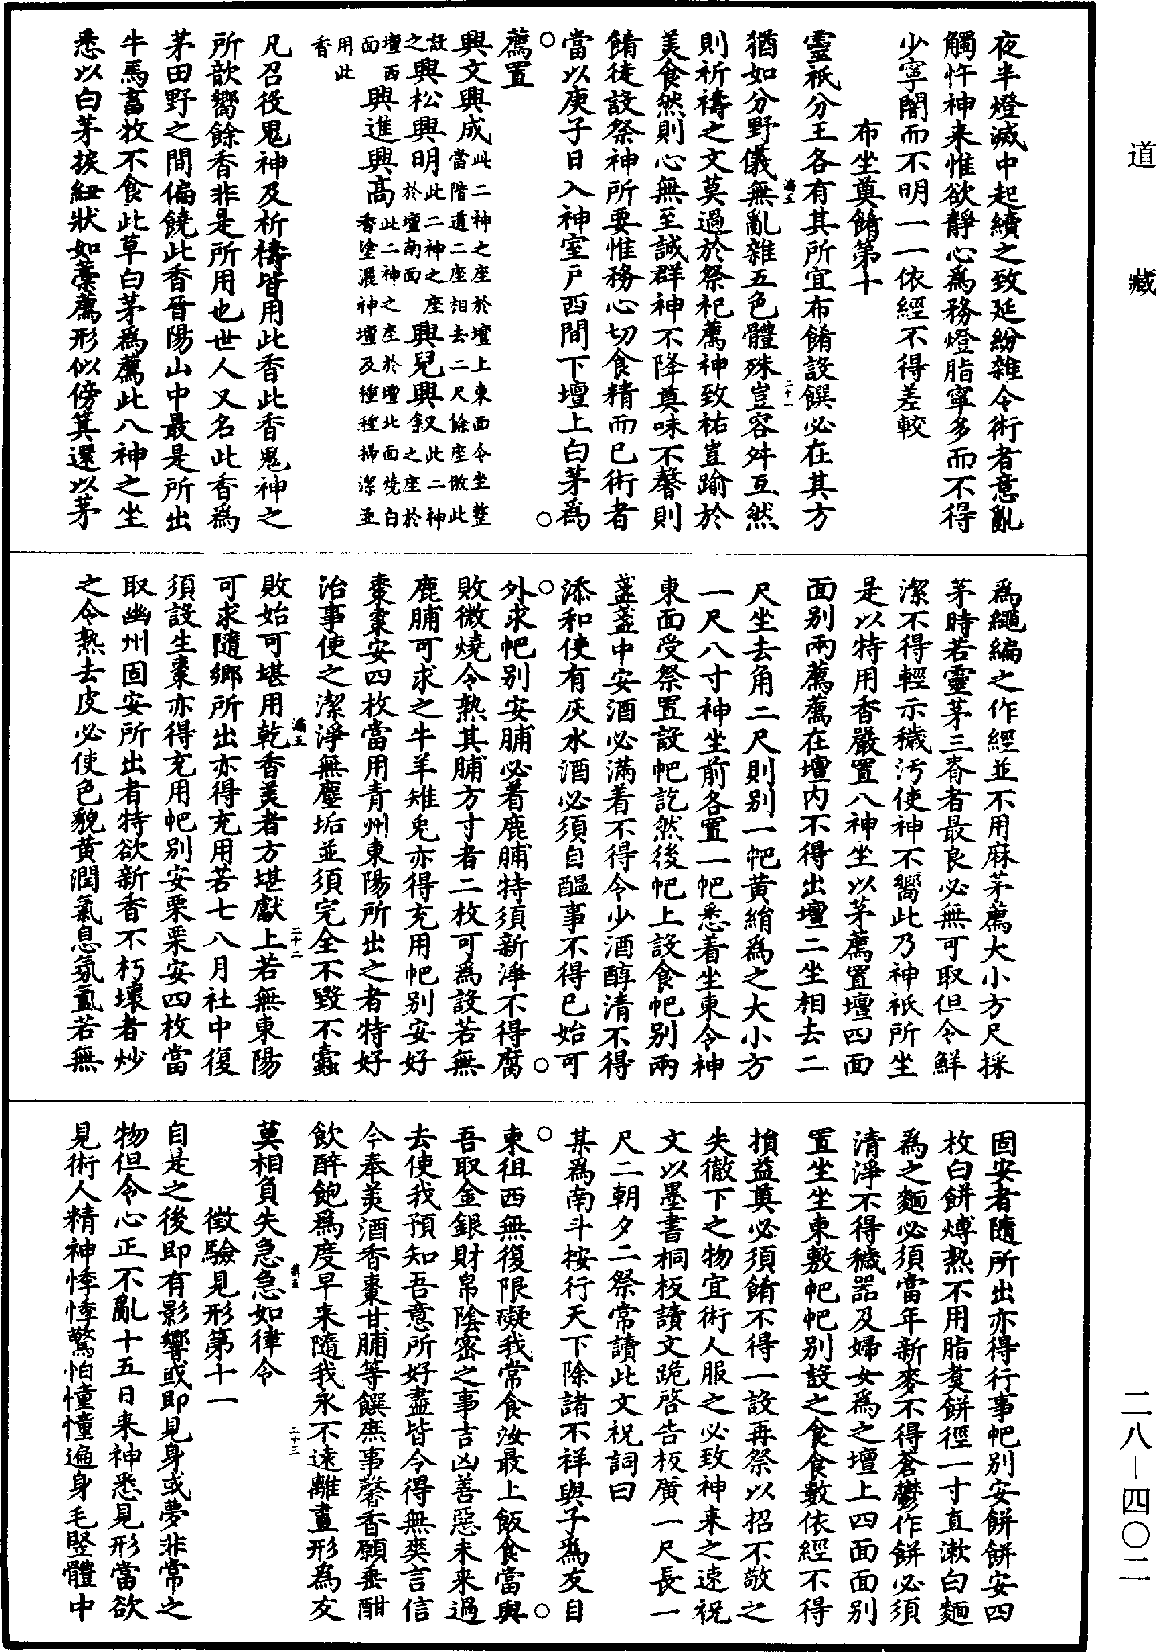 道藏
夜半燈滅中起續之致延紛雜令術者意亂
觸忤神来惟欲靜心為務燈脂寧多而不得
少寧闇而不明一一依經不得差較
布坐奠餚第十
靈祇分王各有其所宜布餚設饌必在其方
猶如分野儀無亂雜五色體殊豈容舛互然
則祈禱之文莫過於祭祀薦神致祐豈踰於
美食然則心無至誠群神不降奠味不馨則
餚徒設祭神所要惟務心切食精而已術者
當以庚子日入神室戶西間下壇上白茅為
薦置
興文興成此二神之座於壇上東面令坐整當階道二座相去二尺餘座倣此
設之興松興明此二神之座於壇南面興兒興叙此二神之座於
壇西面興進興高此二神之座於壇北面燒白香塗泥神壇及種種掃潔並
用此香
凡召役鬼神及祈禱皆用此香此香鬼神之
所歆嚮餘香非是所用也世人又名此香為
茅田野之間偏饒此香晉陽山中最是所出
牛馬畜牧不食此草白茅為薦此八神之坐
悉以白茅挼紐狀如藁薦形似傍箕還以茅
為繩編之作經並不用麻茅薦大小方尺採
茅時若靈茅三脊者最良必無可取但令鮮
潔不得輕示穢污使神不嚮此乃神祇所坐
是以特用香嚴置八神坐以茅薦置壇四面
面別兩薦薦在壇內不得出壇二坐相去二
尺坐去角二尺則別一帊黃綃為之大小方
一尺八寸神坐前各置一帊悉着坐東令神
東面受祭置設帊訖然後帊上設食帊別兩
盞盞中安酒必滿着不得令少酒醇清不得
添和使有灰水酒必須自醞事不得已始可
外求帊別安脯必着鹿脯特須新淨不得腐
敗微燒令熟其脯方寸者二枚可為設若無
鹿脯可求之牛羊雉兎亦得充用帊別安好
棗棗安四枚當用青州東陽所出之者特好
治事使之潔淨無塵垢並須完全不毀不蠹
敗始可堪用乾香美者方堪獻上若無東陽
可求隨鄉所出亦得充用若七八月社中復
須設生棗亦得充用帊別安栗栗安四枚當
取幽州固安所出者特欲新香不朽壞者炒
之令熟去皮必使色貌黃潤氣息氛氳若無
固安者隨所出亦得行事帊別安餅餅安四
枚白餅煿熟不用脂煑餅徑一寸直漱白麵
為之麵必須當年新麥不得蒼鬱作餅必須
清淨不得穢器及婦女為之壇上四面面別
置坐坐東敷帊帊別設之食食數依經不得
損益奠必須餚不得一設再祭以招不敬之
失徹下之物宜術人服之必致神来之速祝
文以墨書桐板讀文跪啓告板廣一尺長一
尺二朝夕二祭常讀此文祝詞曰
某為南斗按行天下除諸不祥與子為友自
東徂西無復限礙我常食汝最上飯食當與
吾取金銀財帛陰密之事吉凶善惡未来過
去使我預知吾意所好盡皆令得無爽言信
今奉羙酒香棗甘脯等饌庶事馨香願垂酣
飲醉飽為度早来隨我永不遠離晝形為友
莫相負失急急如律令
徵驗見形第十一
自是之後即有影響或即見身或夢非常之
物但令心正不亂十五日来神悉見形當欲
見術人精神悸悸驚怕憧憧遍身毛竪體中
二十一
二十二
二十三
二八－四〇二